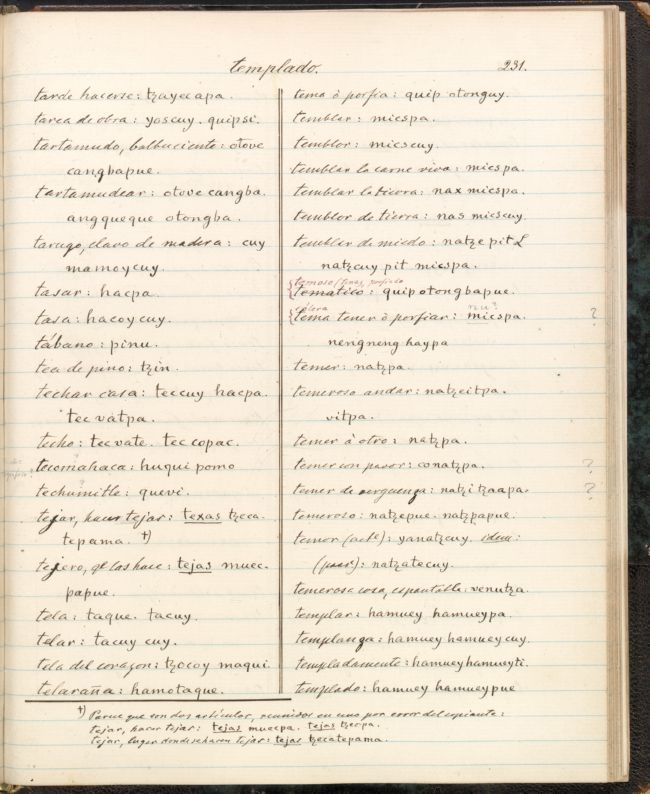 templado.
231.
tarde hacerse: tzayecapa.
tarea de obra: yoscuy. quipsi.
tartamudo, balbuciente: otove
cangbapue.
tartamudear: otove cangba.
angqueque otongba.
tarugo, clavo de madera: cuy
mamoycuy.
tasar: hacpa.
tasa: hacoycuy.
tábano: pinu.
tea de pino: tzin.
techar casa: teccuy hacpa.
tec vatpa.
techo: tecvate. teccopac.
tecomahaca: huqui pomo
techumitle: quevi.
tejar, hacer tejas: texas tzeca-
tepama. †)
tejero, qe las hace: tejas muec-
papue.
tela: taque. tacuy.
telar: tacuy cuy.
tela del corazon: tzocoy maqui.
telaraña: hamotaque.
tema ò porfia: quip otonguy.
temblar: micspa.
temblor: micscuy.
temblar la carne viva: micspa.
temblar la tierra: nax micspa.
temblor de tierra: nas micscuy.
temblar de miedo: natze pit
natzcuy pit micspa.
temoso/tenaz, porfiado
tematico: quipotongbapue.
tema tener ò porfiar: micspa. ?
nengneng haypa
temer: natzpa.
temeroso andar: natzcitpa.
vitpa.
temer à otro: natzpa.
temer con pavor: conatzpa. ?
temer de verguenza: natzitzaapa. ?
temeroso: natzepue. natzpapue.
temor (act.): yanatzcuy. idem:
(pas.): natzatecuy.
temerosa cosa, espantable: venutza.
templar: hamuey hamueypa.
templanza: hamuey hamueycuy.
templadamente: hamueyhamueyti.
templado: hamuey hamueypue
†) Parece que son dos artículos, reunidos en uno por error del copiante:
tejar, hacer tejas: tejas muecpa. tejas tzecpa.
tejar, lugar donde se hacen tejas: tejas tzecatepama.